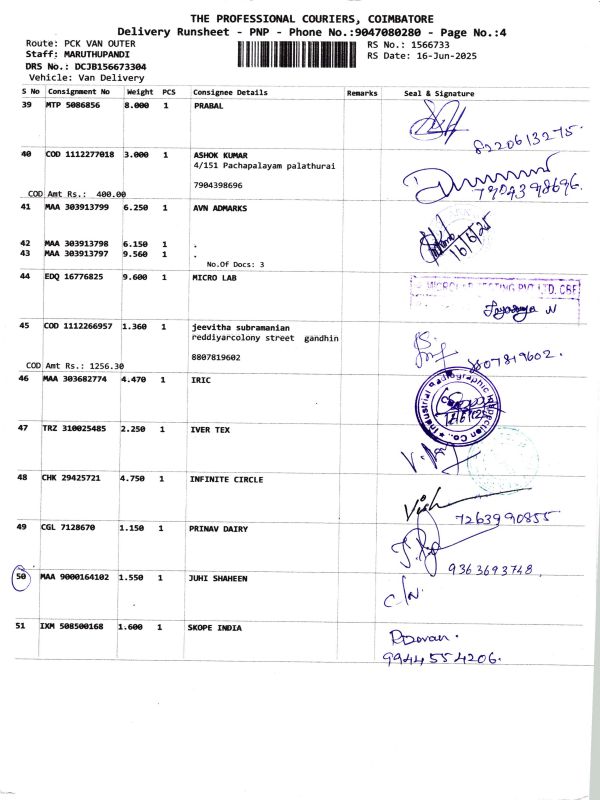 THE PROFESSIONAL COURIERS, COIMBATORE
Delivery Runsheet - PNP - Phone No.:9047080280 - Page No.:4
Route: PCK VAN OUTER
RS No.: 1566733
Staff: MARUTHUPANDI
RS Date: 16-Jun-2025
DRS No.: DCJB156673304
Vehicle: Van Delivery
S No Consignment No Weight PCS Consignee Details Remarks Seal & Signature
39 MTP 5086856 8.000 1 PRABAL
8220613275.
40 COD 1112277018 3.000 1 ASHOK KUMAR
4/151 Pachapalayam palathurai
7904398696
7904398696.
COD Amt Rs.: 400.00
41 MAA 303913799 6.250 1 AVN ADMARKS
16/6/25
42 MAA 303913798 6.150 1 .
43 MAA 303913797 9.560 1 .
No.Of Docs: 3
44 EDQ 16776825 9.600 1 MICRO LAB
45 COD 1112266957 1.360 1 jeevitha subramanian
reddiyarcolony street gandhin
8807819602
8807819602.
COD Amt Rs.: 1256.30
46 MAA 303682774 4.470 1 IRIC
Industrial Radiographic Inspection Co.,
47 TRZ 310025485 2.250 1 IVER TEX
48 CHK 29425721 4.750 1 INFINITE CIRCLE
7263990855
49 CGL 7128670 1.150 1 PRINAV DAIRY
9363693748
50 MAA 9000164102 1.550 1 JUHI SHAHEEN
51 IXM 508500168 1.600 1 SKOPE INDIA
9944554206.